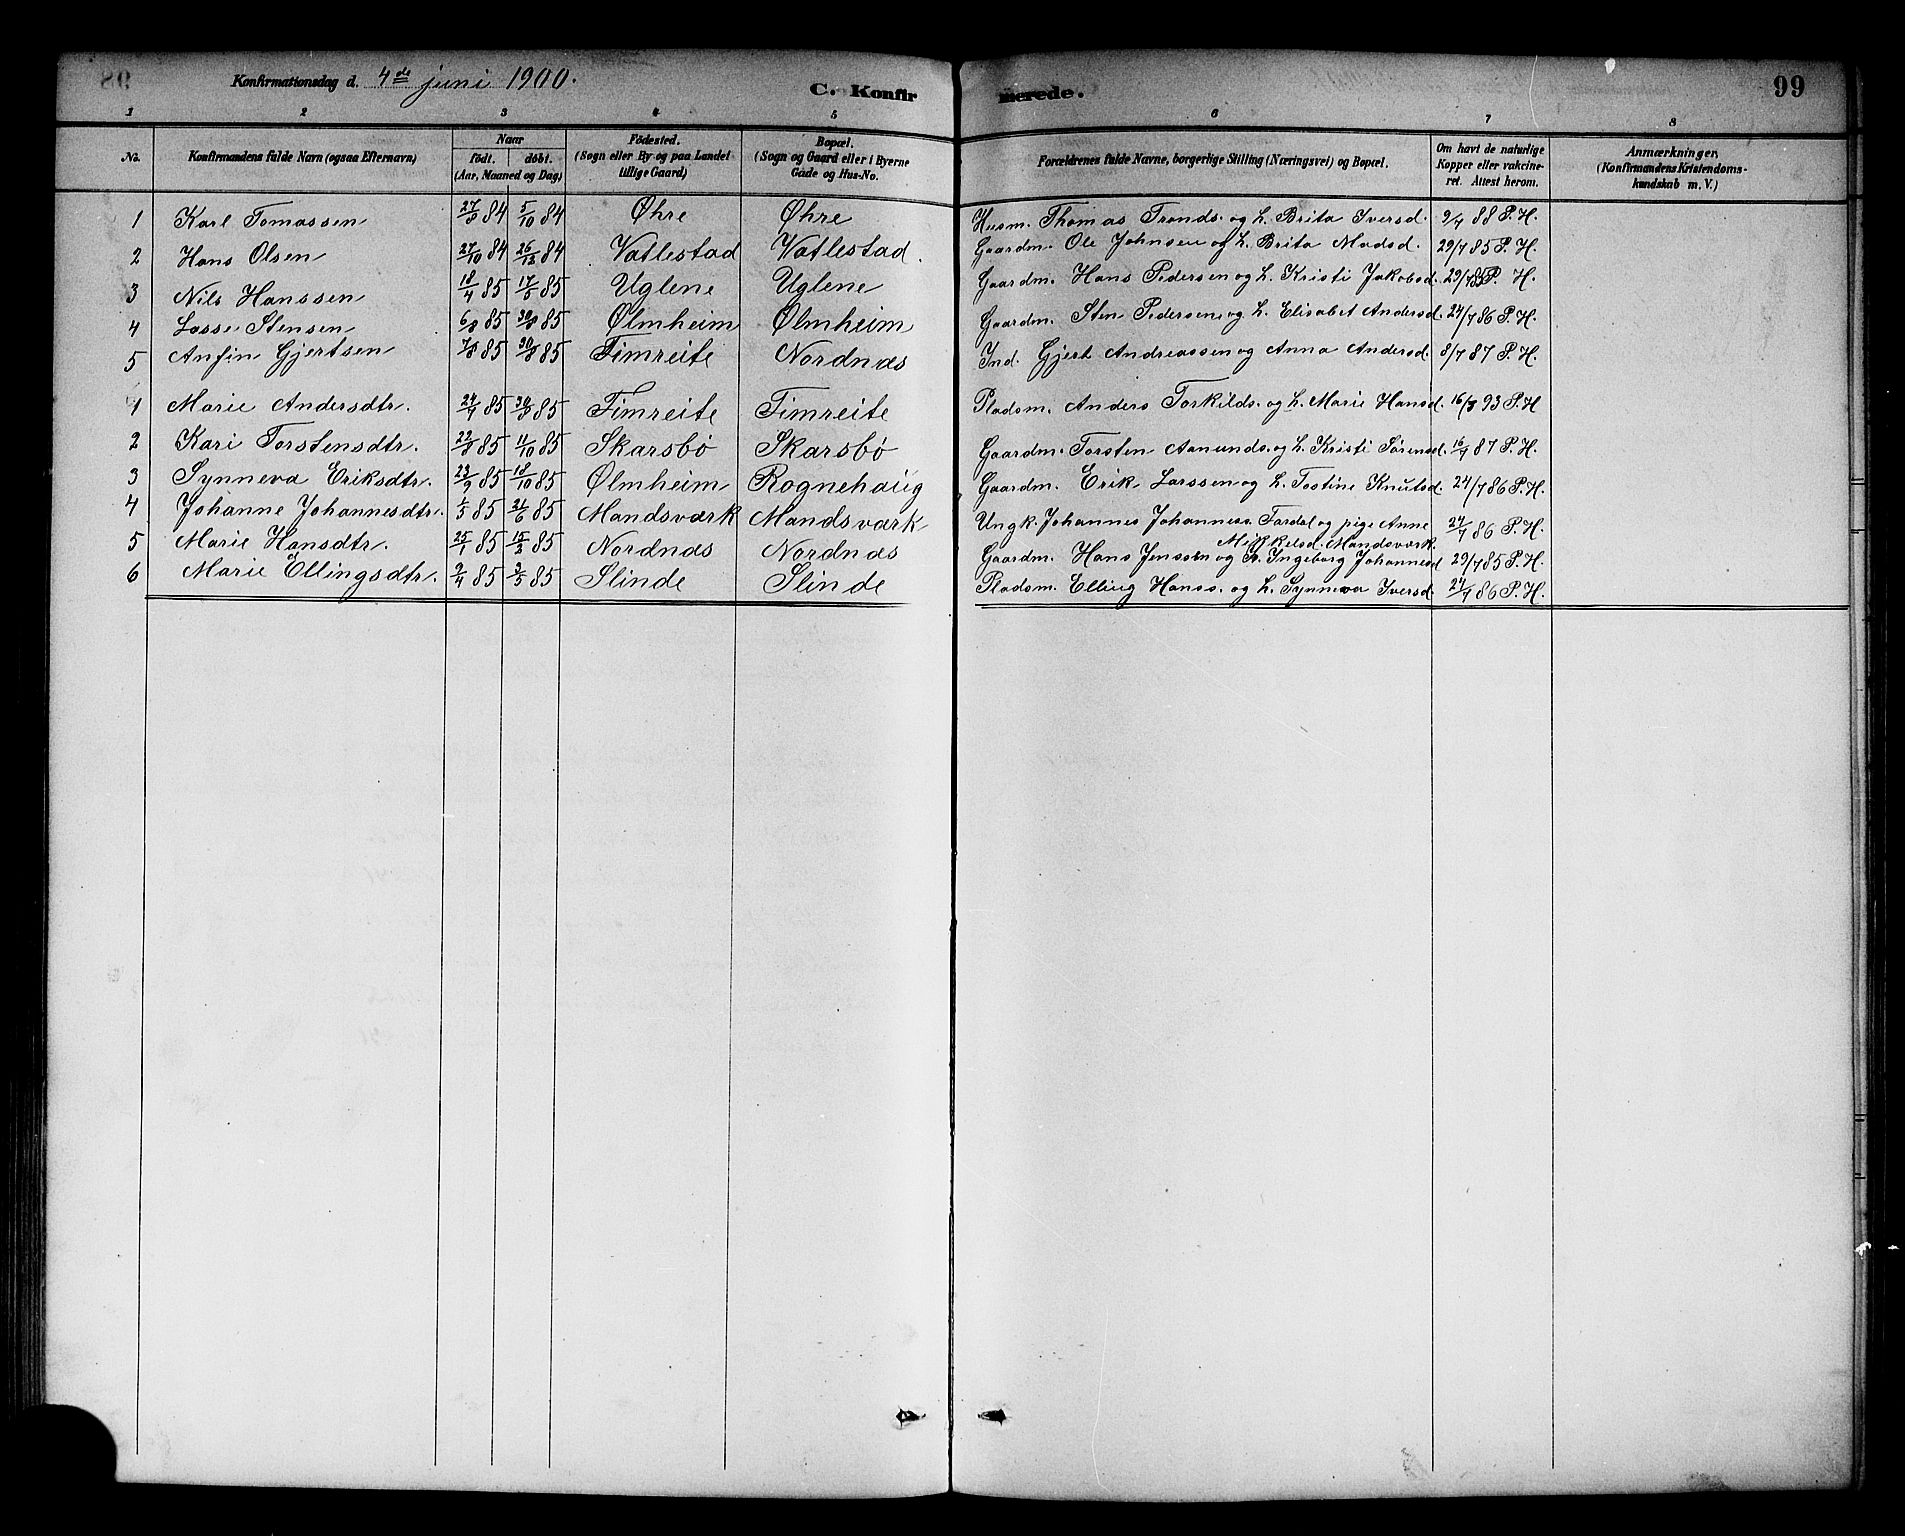 Konfirmationsdag d. 4de juni 1900. C. Konfir merede. 99
1 2 3 4 5 6 7 8
No. Konfirmandens fulde Navn (ogsaa Efternavn) Naar födt. döbt. (Aar, Maaned og Dag) Födested. (Sogn eller By og paa Landet tillige Gaard) Bopæl. (Sogn og Gaard eller i Byerne Gade og Hus-No. Forældrenes fulde Navne, borgerlige Stilling (Næringsvei) og Bopæl. Om havt de naturlige Kopper eller vakcineret. Attest herom. Anmærkninger, (Konfirmandens Kristendomskundskab m. V.)
1 Karl Tomassen 27/9 84 5/10 84 Øhre Øhre Husm. Thomas Tronds. og h. Brita Iversd. 9/7 88 P. H.
2 Hans Olsen 27/10 84 26/12 84 Vatlestad Vatlestad. Gaardm. Ole Johnsen og h. Brita Madsd. 29/7 85 P. H.
3 Nils Hanssen 18/4 85 17/5 85 Uglene Uglene Gaardm. Hans Pedersen og h. Kristi Jakobsd. 29/7 85 P. H.
4 Lasse Stensen 6/8 85 30/8 85 Ølmheim Ølmheim Gaardm. Sten Pedersen og h. Elisabet Andersd. 24/7 86 P. H.
5 Anfin Gjertsen 7/8 85 30/8 85 Timreite Nordnæs Ind. Gjert Andreassen og Anna Andersd. 8/7 87 P. H.
1 Marie Andersdtr. 24/7 85 30/8 85 Timreite Timreite Pladsm. Anders Torkilds. og h. Marie Hansd. 16/8 93 P. H
2 Kari Torstensdtr. 22/8 85 11/10 85 Skarsbø Skarsbø Gaardm. Torsten Aamunds. og h. Kristi Sørensd. 16/7 87 P. H.
3 Synneva Eriksdtr. 23/9 85 18/10 85 Ølmheim Rognehaug Gaardm. Erik Larssen og h. Tostine Knutsd. 24/7 86 P. H.
4 Johanne Johannesdtr. 1/5 85 21/6 85 Mandsværk Mandsværk Ungk. Johannes Johanness. Tardal og pige Anne 24/7 86 P. H.
Mikkelsd. Mandsværk.
5 Marie Hansdtr. 25/1 85 15/2 85 Nordnæs Nordnæs Gaardm. Hans Jenssen og h. Ingeborg Johannesd 29/7 85 P. H.
6 Marie Ellingsdtr. 2/4 85 3/5 85 Slinde Slinde Pladsm. Elling Hanss. og h. Synneva Iversd. 24/7 86 P. H.